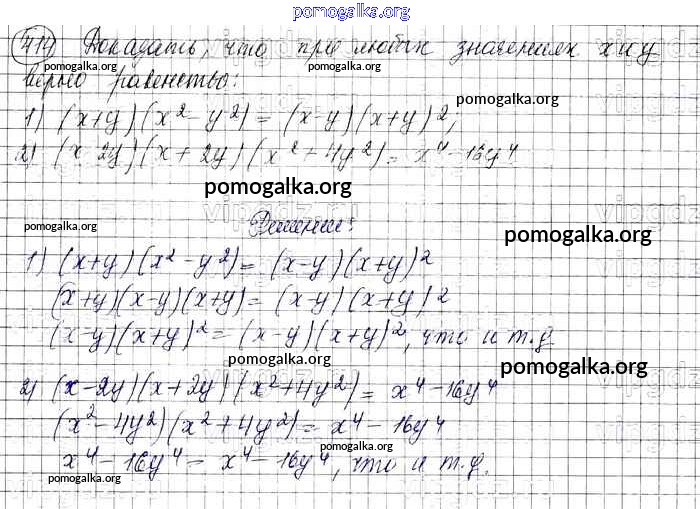 pomogalka.org
414 Доказать, что при любых значениях x и y
pomogalka.org pomogalka.org
верно равенство:
pomogalka.org
1) (x+y)(x² - y²) = (x-y)(x+y)²;
pomogalka.org
2) (x-2y)(x+2y)(x²+4y²) = x⁴-16y⁴
pomogalka.org
pomogalka.org
Решение:
pomogalka.org
1) (x+y)(x²-y²) = (x-y)(x+y)²
(x+y)(x-y)(x+y) = (x-y)(x+y)²
(x-y)(x+y)² = (x-y)(x+y)², что и т.д.
pomogalka.org
pomogalka.org
2) (x-2y)(x+2y)(x²+4y²) = x⁴-16y⁴
(x²-4y²)(x²+4y²) = x⁴-16y⁴
pomogalka.org
x⁴-16y⁴ = x⁴-16y⁴, что и т.д.